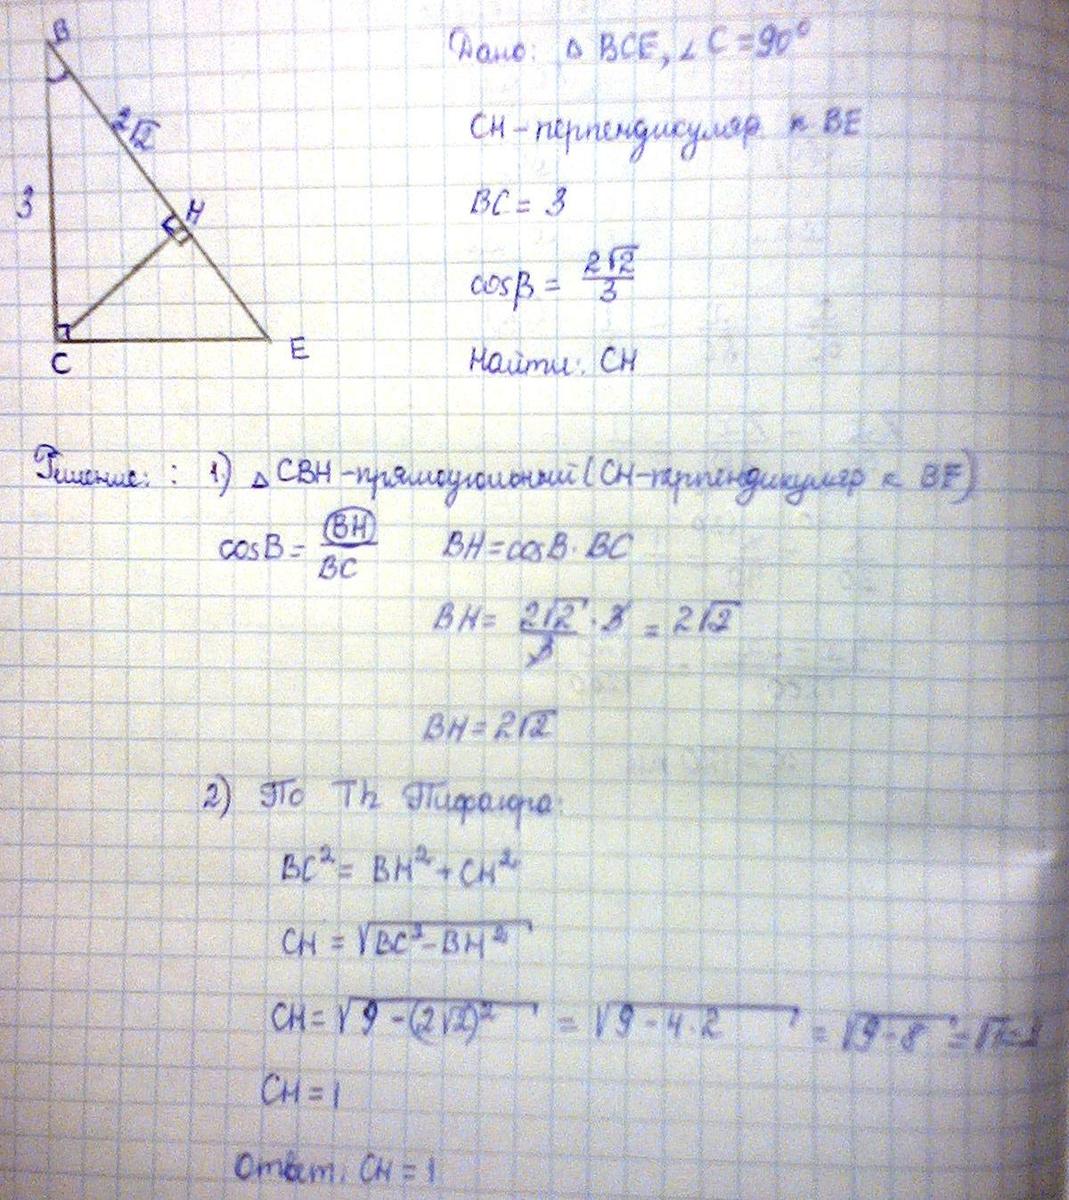 B
2√2
3
H
C
E
Дано: △ BCE, ∠C = 90°
CH - перпендикуляр к BE
BC = 3
cosβ = 2√2/3
Найти: CH
Решение: : 1) △ CBH - прямоугольный (CH - перпендикуляр к BE)
cosB = BH/BC BH = cosB · BC
BH = 2√2/3 · 3 = 2√2
BH = 2√2
2) По Th Пифагора:
BC² = BH² + CH²
CH = √BC² - BH²
CH = √9 - (2√2)² = √9 - 4 · 2 = √9 - 8 = √1 = 1
CH = 1
Ответ: CH = 1